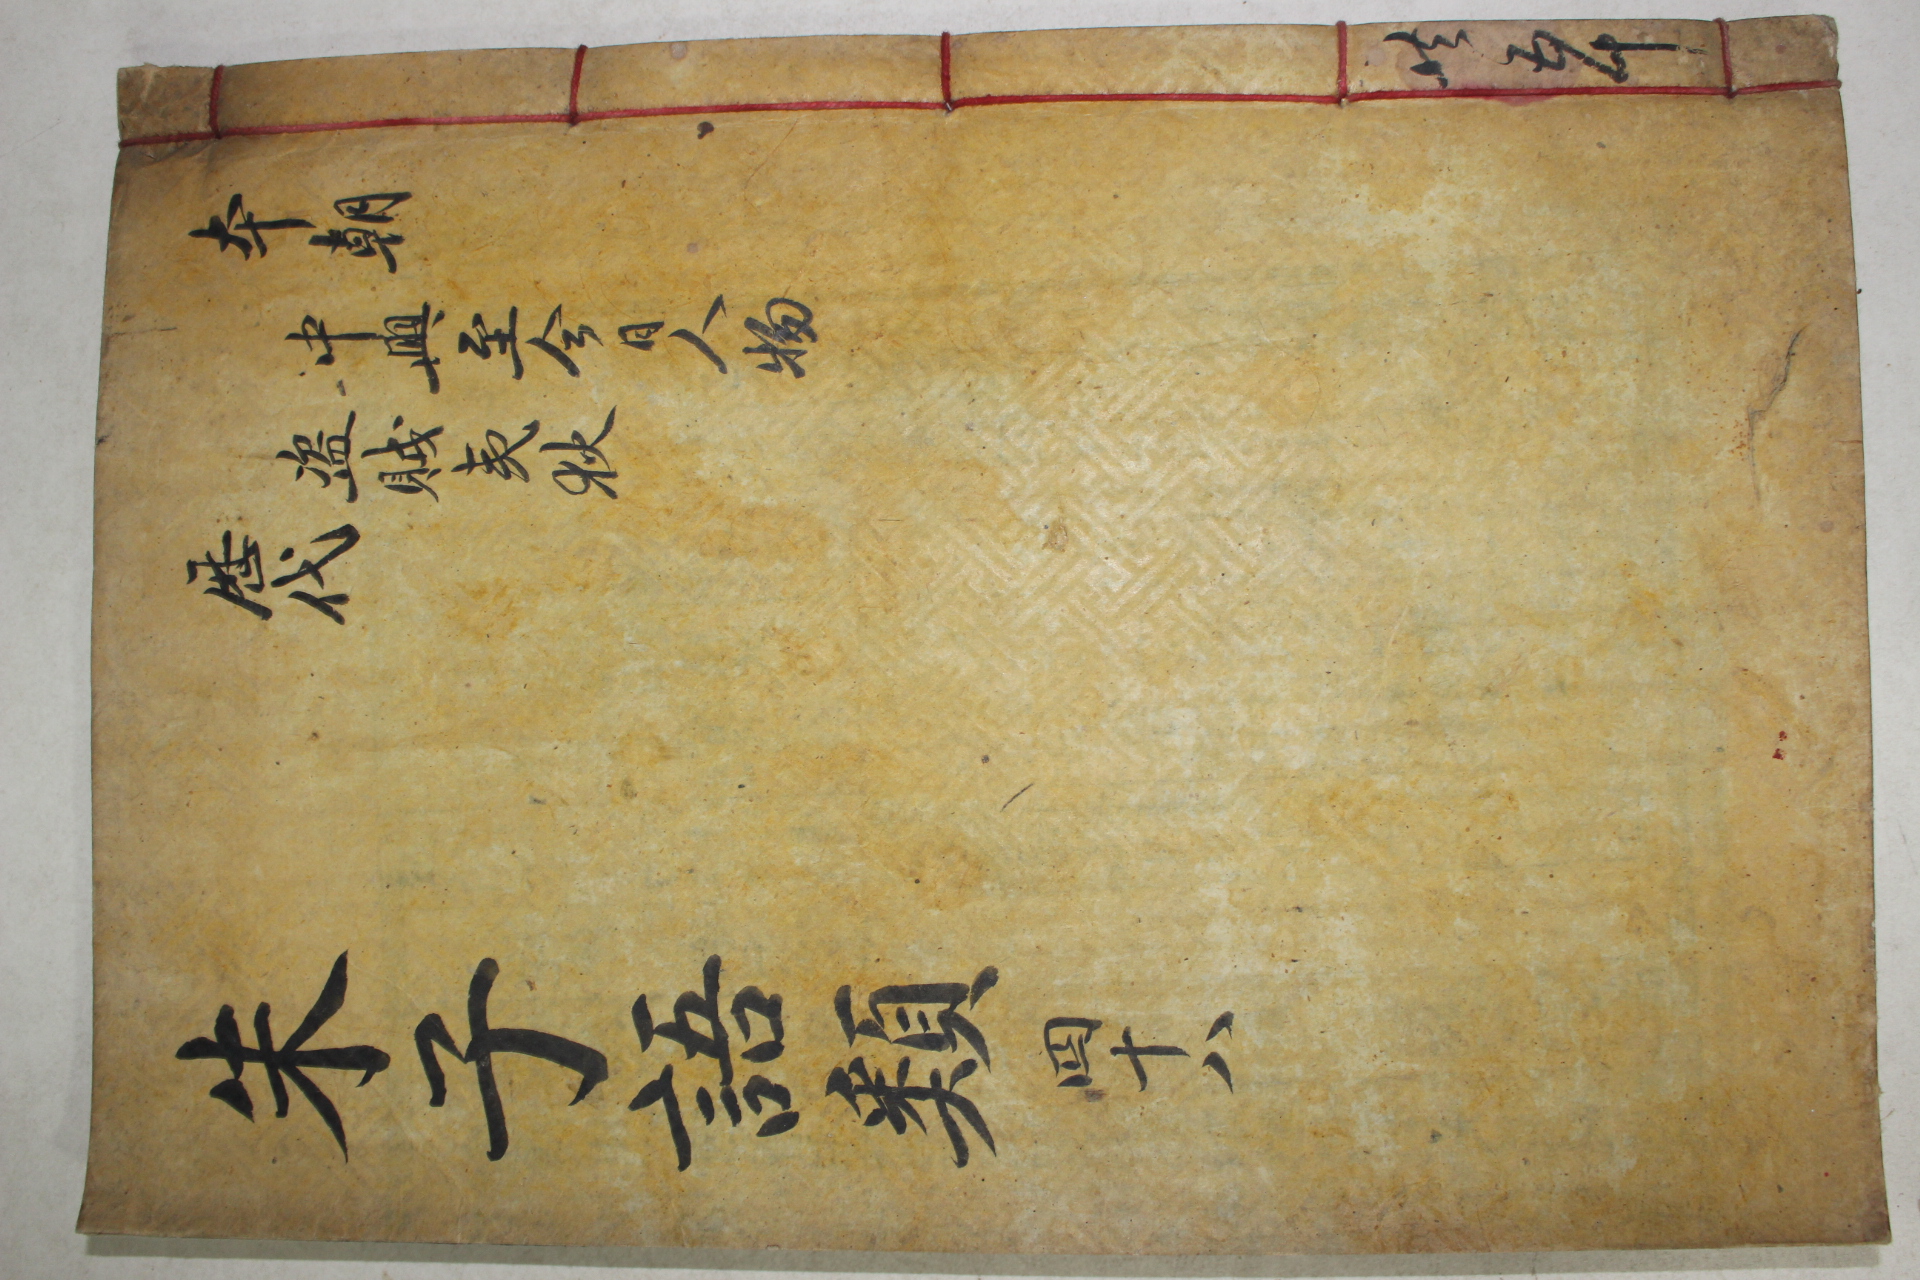 朱子語類 四十八
本朝
中興至今日人物
盜賊夷狄
歷代
共五十